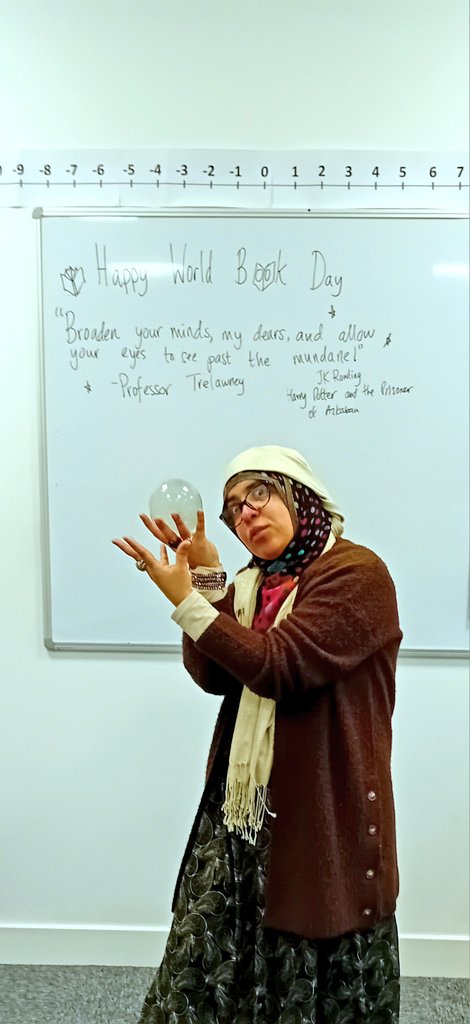 -9 -8 -7 -6 -5 -4 -3 -2 -1 0 1 2 3 4 5 6 7
Happy World Book Day
"Broaden your minds, my dears, and allow
your eyes to see past the mundane!"
-Professor Trelawney
JK Rowling
Harry Potter and the Prisoner
of Azkaban